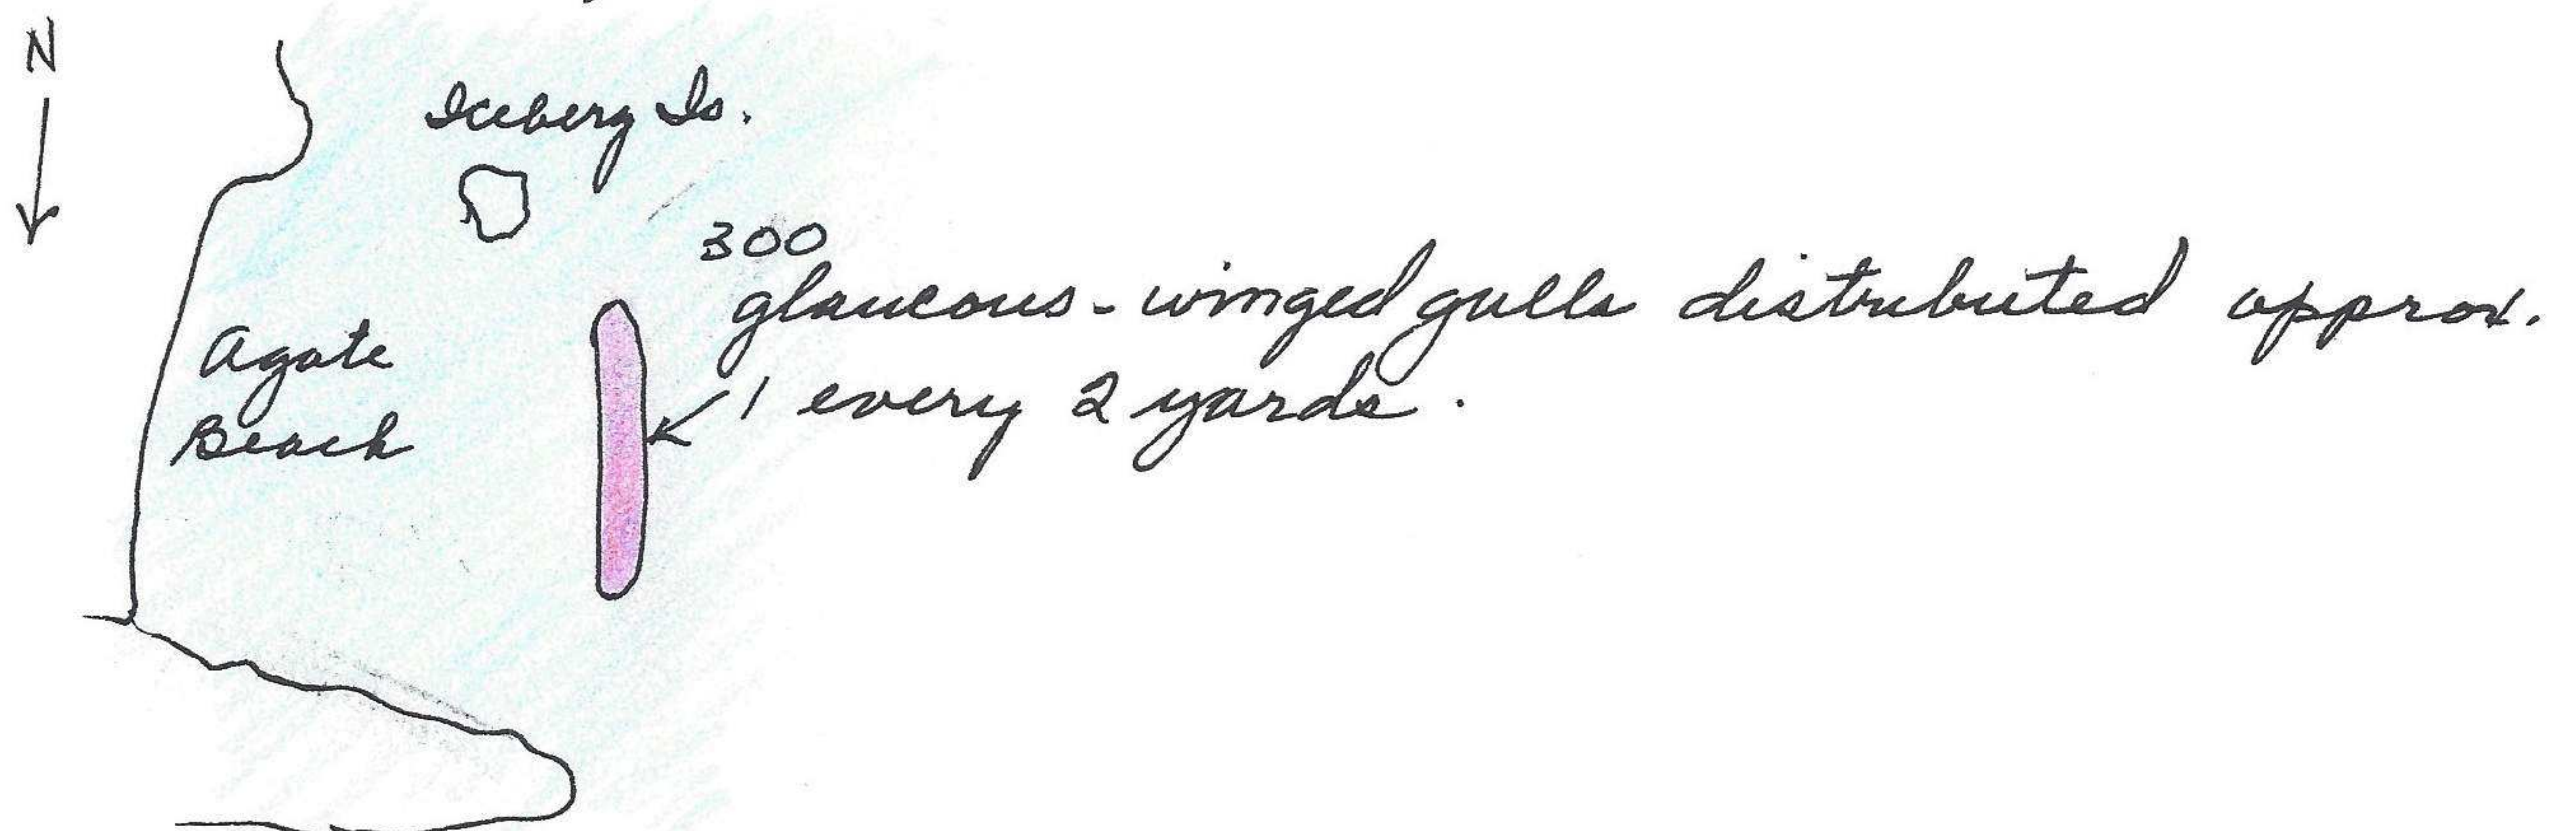 N
Iceberg Is.
300
glaucous-winged gulls distributed approx.
1 every 2 yards.
Agate
Beach